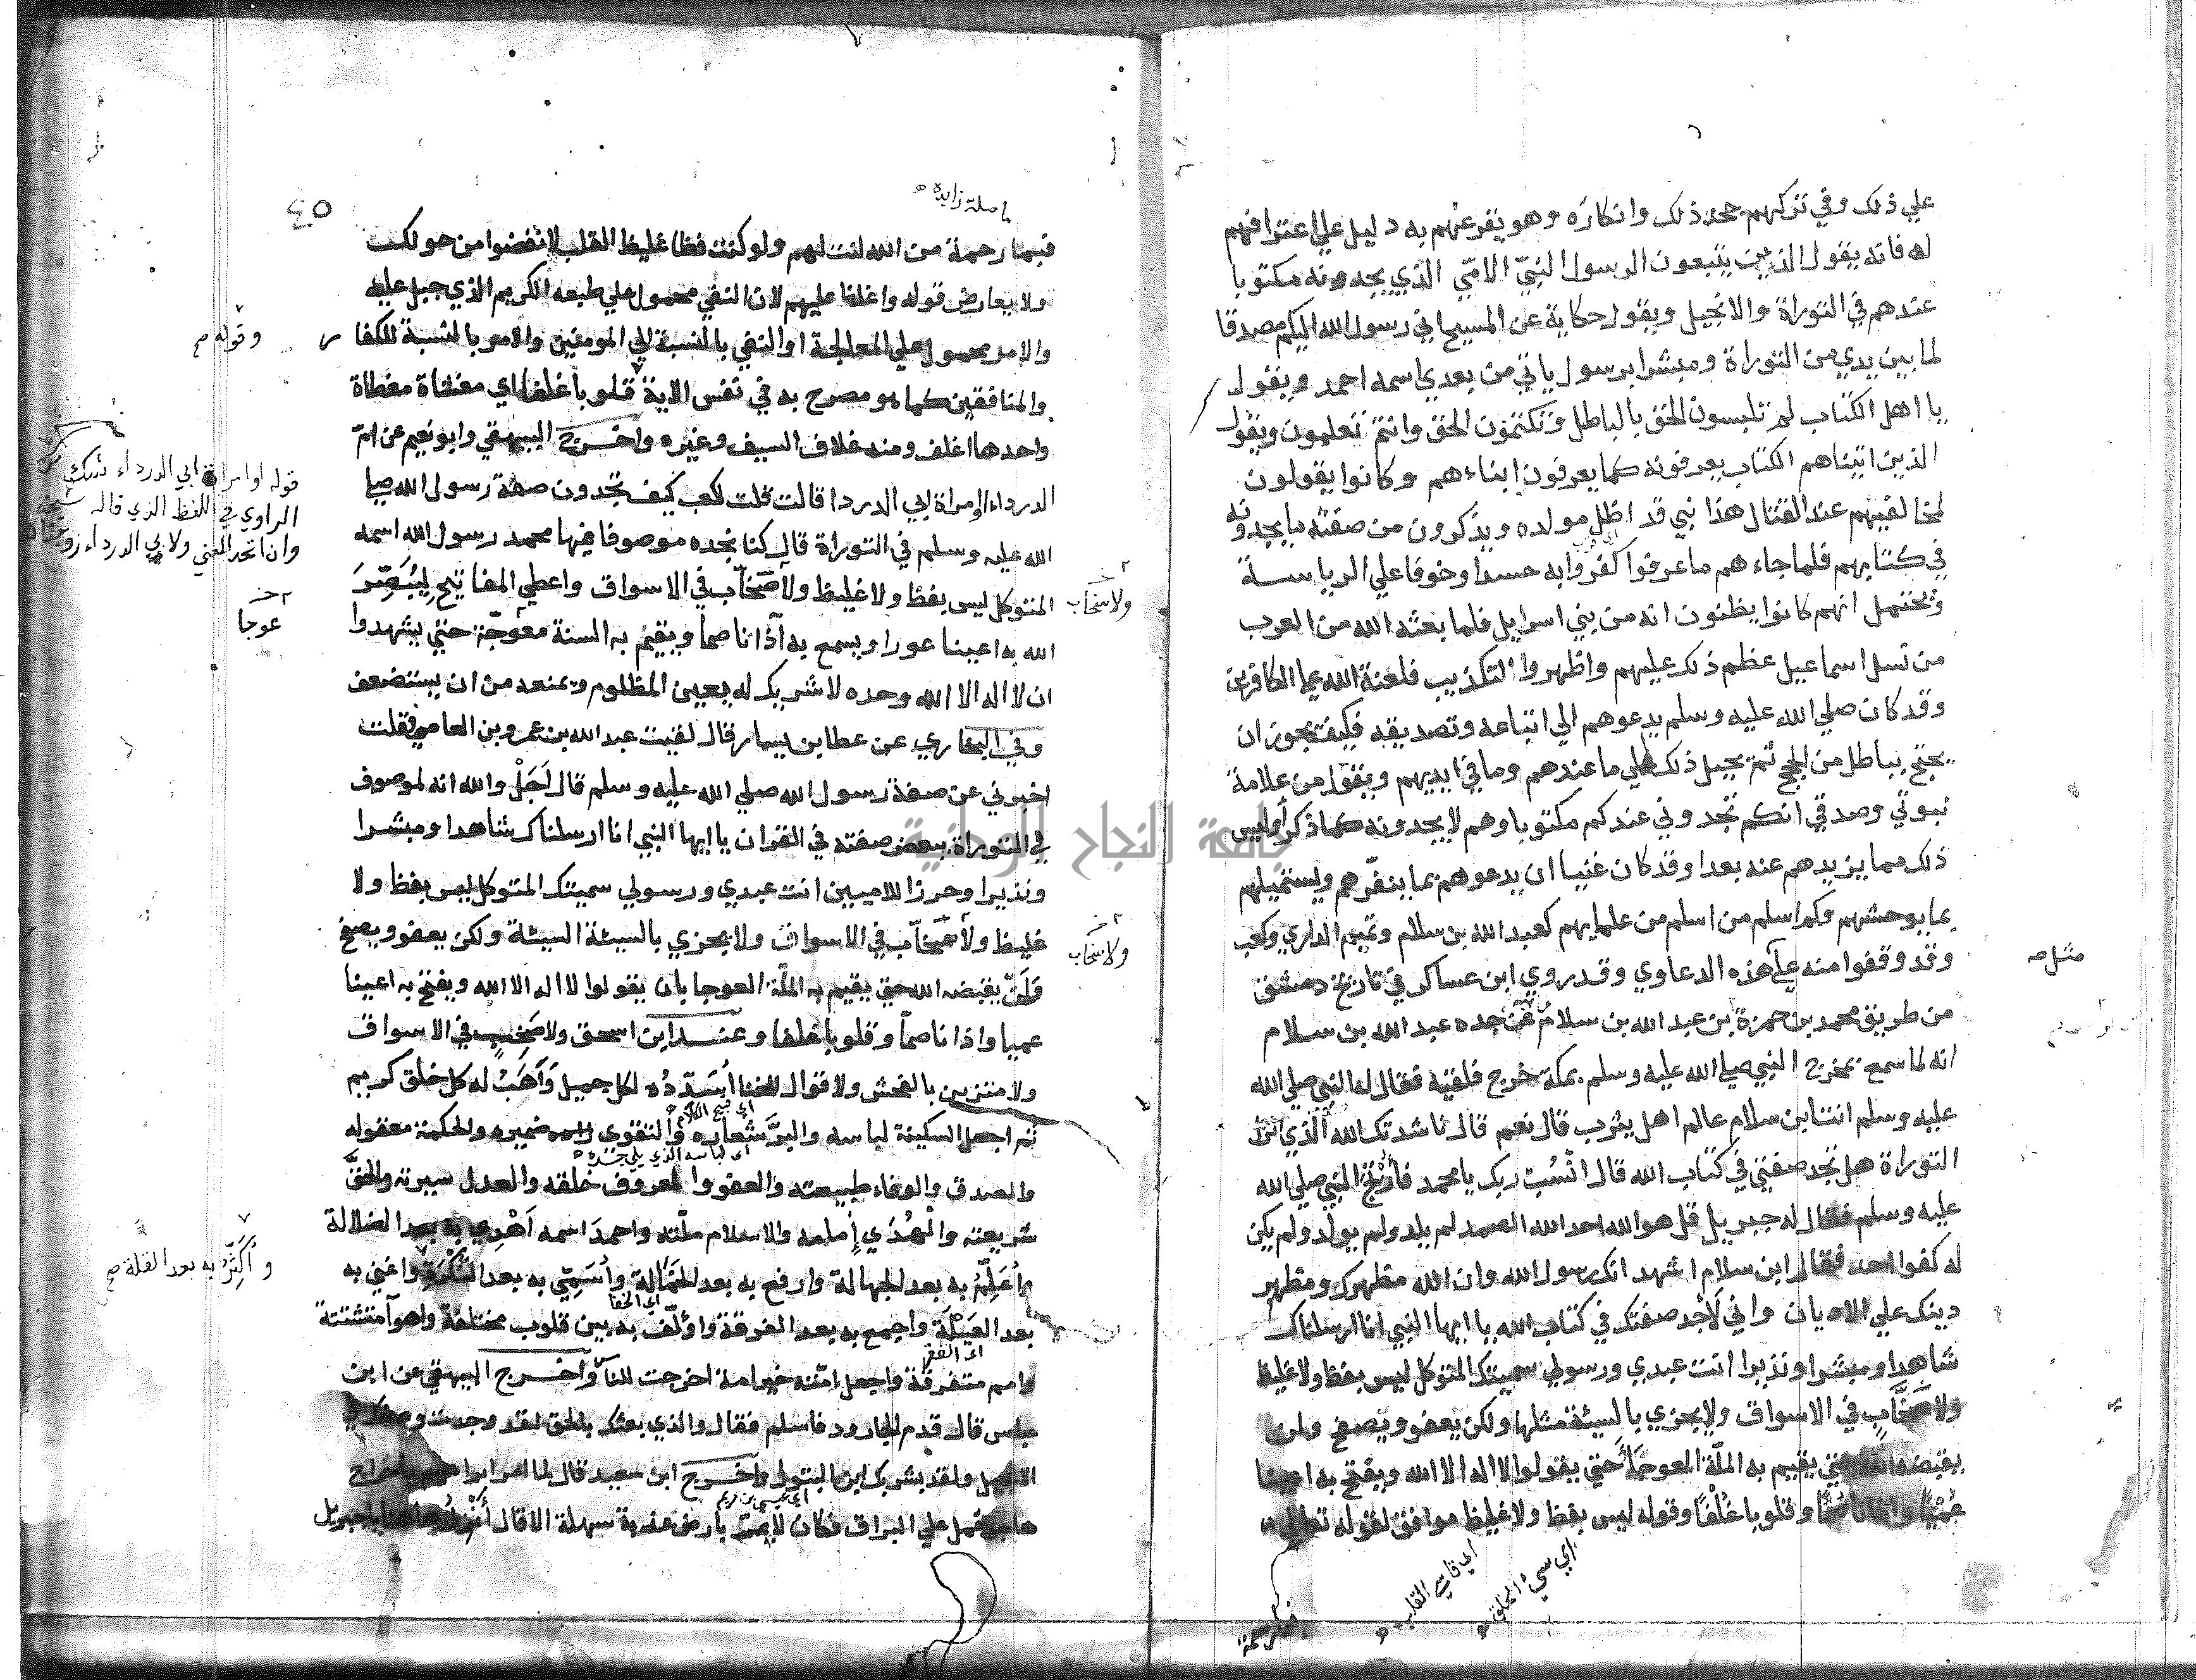 علي ذلك وفي تركهم جحد ذلك وانكاره وهو يقرعهم به دليل علي اعترافهم
له فانه يقول الذين يتبعون الرسول النبيّ الامّي الذي يجدونه مكتوبا
عندهم في التوراة والانجيل ويقول حكاية عن المسيح اني رسول الله اليكم مصدقا
لما بين يدي من التوراة ومبشرا برسول ياتي من بعدي اسمه احمد ويقول
يا اهل الكتاب لم تلبسون الحق بالباطل وتكتمون الحق وانتم تعلمون ويقول
الذين اتيناهم الكتاب يعرفونه كما يعرفون ابناءهم وكانوا يقولون
لمخالفيهم عند القتال هذا نبي قد اظل مولده ويذكرون من صفته ما يجدونه
في كتابهم فلما جاءهم ما عرفوا كفروا به حسدا وخوفا علي الرياسة
ويحتمل انهم كانوا يظنون انه من بني اسرايل فلما بعثه الله من العرب
من نسل اسماعيل عظم ذلك عليهم واظهروا التكذيب فلعنة الله علي الكافرين
وقد كان صلي الله عليه وسلم يدعوهم الي اتباعه وتصديقه فكيف يجوز ان
يحتج بباطل من الحجج ثم يحيل ذلك علي ما عندهم وما في ايديهم ويقول من علامة
نبوتي وصدقي انكم تجدوني عندكم مكتوبا وهم لا يجدونه كما ذكر أوليس
ذلك مما يزيدهم عنه بعدا وقد كان غنيا ان يدعوهم بما ينفّرهم ويستميلهم
بما يوحشهم وكم اسلم من اسلم من علمايهم كعبد الله بن سلام وتميم الداري وكعب
وقد وقفوا منه علي هذه الدعاوي وقد روي ابن عساكر في تاريخ دمشق
مثل صه
من طريق محمد بن حمزة بن عبد الله بن سلام عن جده عبد الله بن سلام
انه لما سمع بمخرج النبي صلي الله عليه وسلم بمكة خرج فلقيه فقال له النبي صلي الله
عليه وسلم انت ابن سلام عالم اهل يثرب قال نعم قال ناشدتك الله الذي انزل
التوراة هل تجد صفتي في كتاب الله قال انسُب ربك يا محمد فأرتج النبي صلي الله
عليه وسلم فقال له جبريل قل هو الله احد الله الصمد لم يلد ولم يولد ولم يكن
له كفوا احد فقال ابن سلام اشهد انك رسول الله وان الله مظهرك ومظهر
دينك علي الاديان واني لأجد صفتك في كتاب الله يا ايها النبي انا ارسلناك
شاهدا ومبشرا ونذيرا انت عبدي ورسولي سميتك المتوكل ليس بفظ ولا غليظ
ولا صخّاب في الاسواق ولا يجزي بالسيئة مثلها ولكن يعفو ويصفح ولن
يقبضه الله حتي يقيم به الملّة العوجاء حتي يقولوا لا اله الا الله ويفتح به اعينا
عُمْيًا واذانا صُمًّا وقلوبا غُلْفًا وقوله ليس بفظ ولا غليظ موافق لقوله تعالي
اي سيئ الخلق
اي قاسي القلب
فبما رحمة
ما صلة زايدة
٤٥
فبما رحمة من الله لنت لهم ولو كنت فظا غليظ القلب لانفضوا من حولك
ولا يعارض قوله واغلظ عليهم لان النفي محمول علي طبعه الكريم الذي جبل عليه
والامر محمول علي المعالجة او النفي بالنسبة الي المومنين والامر بالنسبة للكفا ر
وقوله صح
والمنافقين كما هو مصرح به في نفس الاية قلوبا غلفا اي مغشاة مغطاة
واحدها اغلف ومنه غلاف السيف وغيره واخرج البيهقي وابو نعيم عن امّ
الدرداء امراة ابي الدردا قالت قلت لكعب كيف تجدون صفة رسول الله صلي
قوله او امراة ابي الدرداء شك من
الراوي في اللفظ الذي قاله شيخه
وان اتحد المعني ولابي الدرداء زوجتان
الله عليه وسلم في التوراة قال كنا نجده موصوفا فيها محمد رسول الله اسمه
المتوكل ليس بفظ ولا غليظ ولا صخّاب في الاسواق واعطي المفاتيح ليُبَصِّرَ
ولا سخاب
الله به اعينا عورا ويسمع به آذانا صما ويقيم به السنة معوجّة حتي يشهدوا
عوجا
ان لا اله الا الله وحده لا شريك له يعين المظلوم ويمنعه من ان يستضعف
وفي البخاري عن عطا بن يسار قال لقيت عبد الله بن عمرو بن العاصي فقلت
اخبرني عن صفة رسول الله صلي الله عليه وسلم قال أَجَلْ والله انه لموصوف
في التوراة ببعض صفته في القران يا ايها النبي انا ارسلناك شاهدا ومبشرا
جامعة النجاح الوطنية
ونذيرا وحرزا للاميين انت عبدي ورسولي سميتك المتوكل ليس بفظ ولا
غليظ ولا صخّاب في الاسواق ولا يجزي بالسيئة السيئة ولكن يعفو ويصفح
ولا سخاب
ولن يقبضه الله حتي يقيم به الملّة العوجا بان يقولوا لا اله الا الله ويفتح به اعينا
عميا واذانا صمّا وقلوبا غلفا وعند ابن اسحق ولا صخب في الاسواق
ولا متزين بالفحش ولا قوال للخنا أسدّده لكل جميل وَأهَبُ له كل خلق كريم
اي قبيح الكلام
ثم اجعل السكينة لباسه والبرَّ شعاره والتقوي ضميره والحكمة معقوله
اي لباسه الذي يلي جسده
والصدق والوفاء طبيعته والعفو والمعروف خلقه والعدل سيرته والحقَّ
شريعته والهُدَي إمامه والاسلام ملّته واحمدَ اسمه أَهْدِي به بعد الضلالة
وأُعَلِّمُ به بعد الجهالة وارفع به بعد الخمالة وأُسَمِّي به بعد النُّكْرَة واغني به
اي الخفا
وأُكَثِّرُ به بعد القلة صح
بعد العَيْلَة واجمع به بعد الفرقة واؤلّف به بين قلوب مختلفة واهوآ متشتتة
اي الفقر
وامم متفرقة واجعل امّته خير امة اخرجت للناس واخرج البيهقي عن ابن
عباس قال قدم الجارود فاسلم فقال والذي بعثك بالحق لقد وجدت وصفك في
الانجيل ولقد بشر بك ابن البتول واخرج ابن سعيد قال لما امر ابراهيم باخراج
اي عيسي بن مريم
هاجر حمل علي البراق فكان لا يمرّ بارض عذبة سهلة الا قال أَنْزِلُ هاهنا يا جبريل